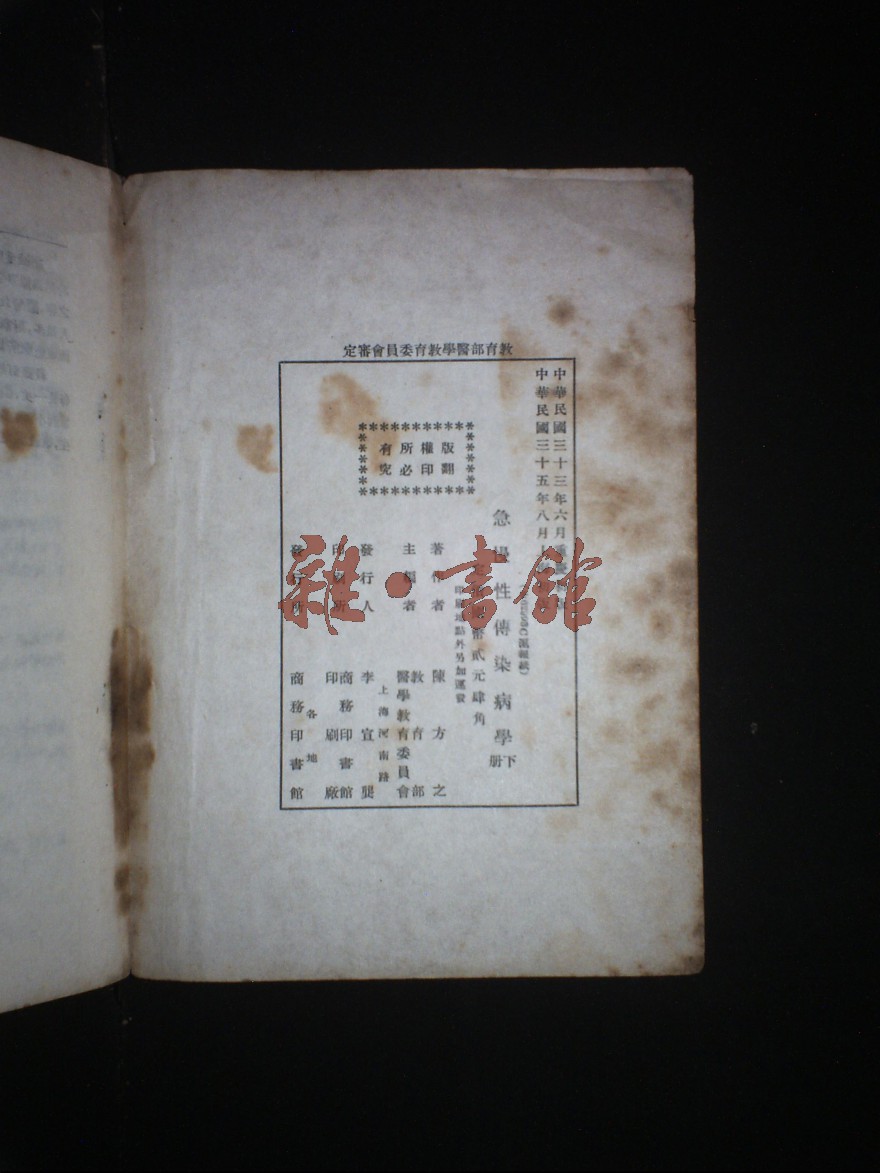 教育部醫學教育委員會審定
中華民國三十三年六月重慶初版
中華民國三十五年八月上海
版權所有
翻印必究
急慢性傳染病學下册
滬報紙
幣貳元肆角
印刷地點外另加運費
著作者 陳方之
主編者 教育部
醫學教育委員會
上海河南路
發行人 李宣龔
印刷所 商務印書館
印刷廠
發行所 各地
商務印書館
雜·書館